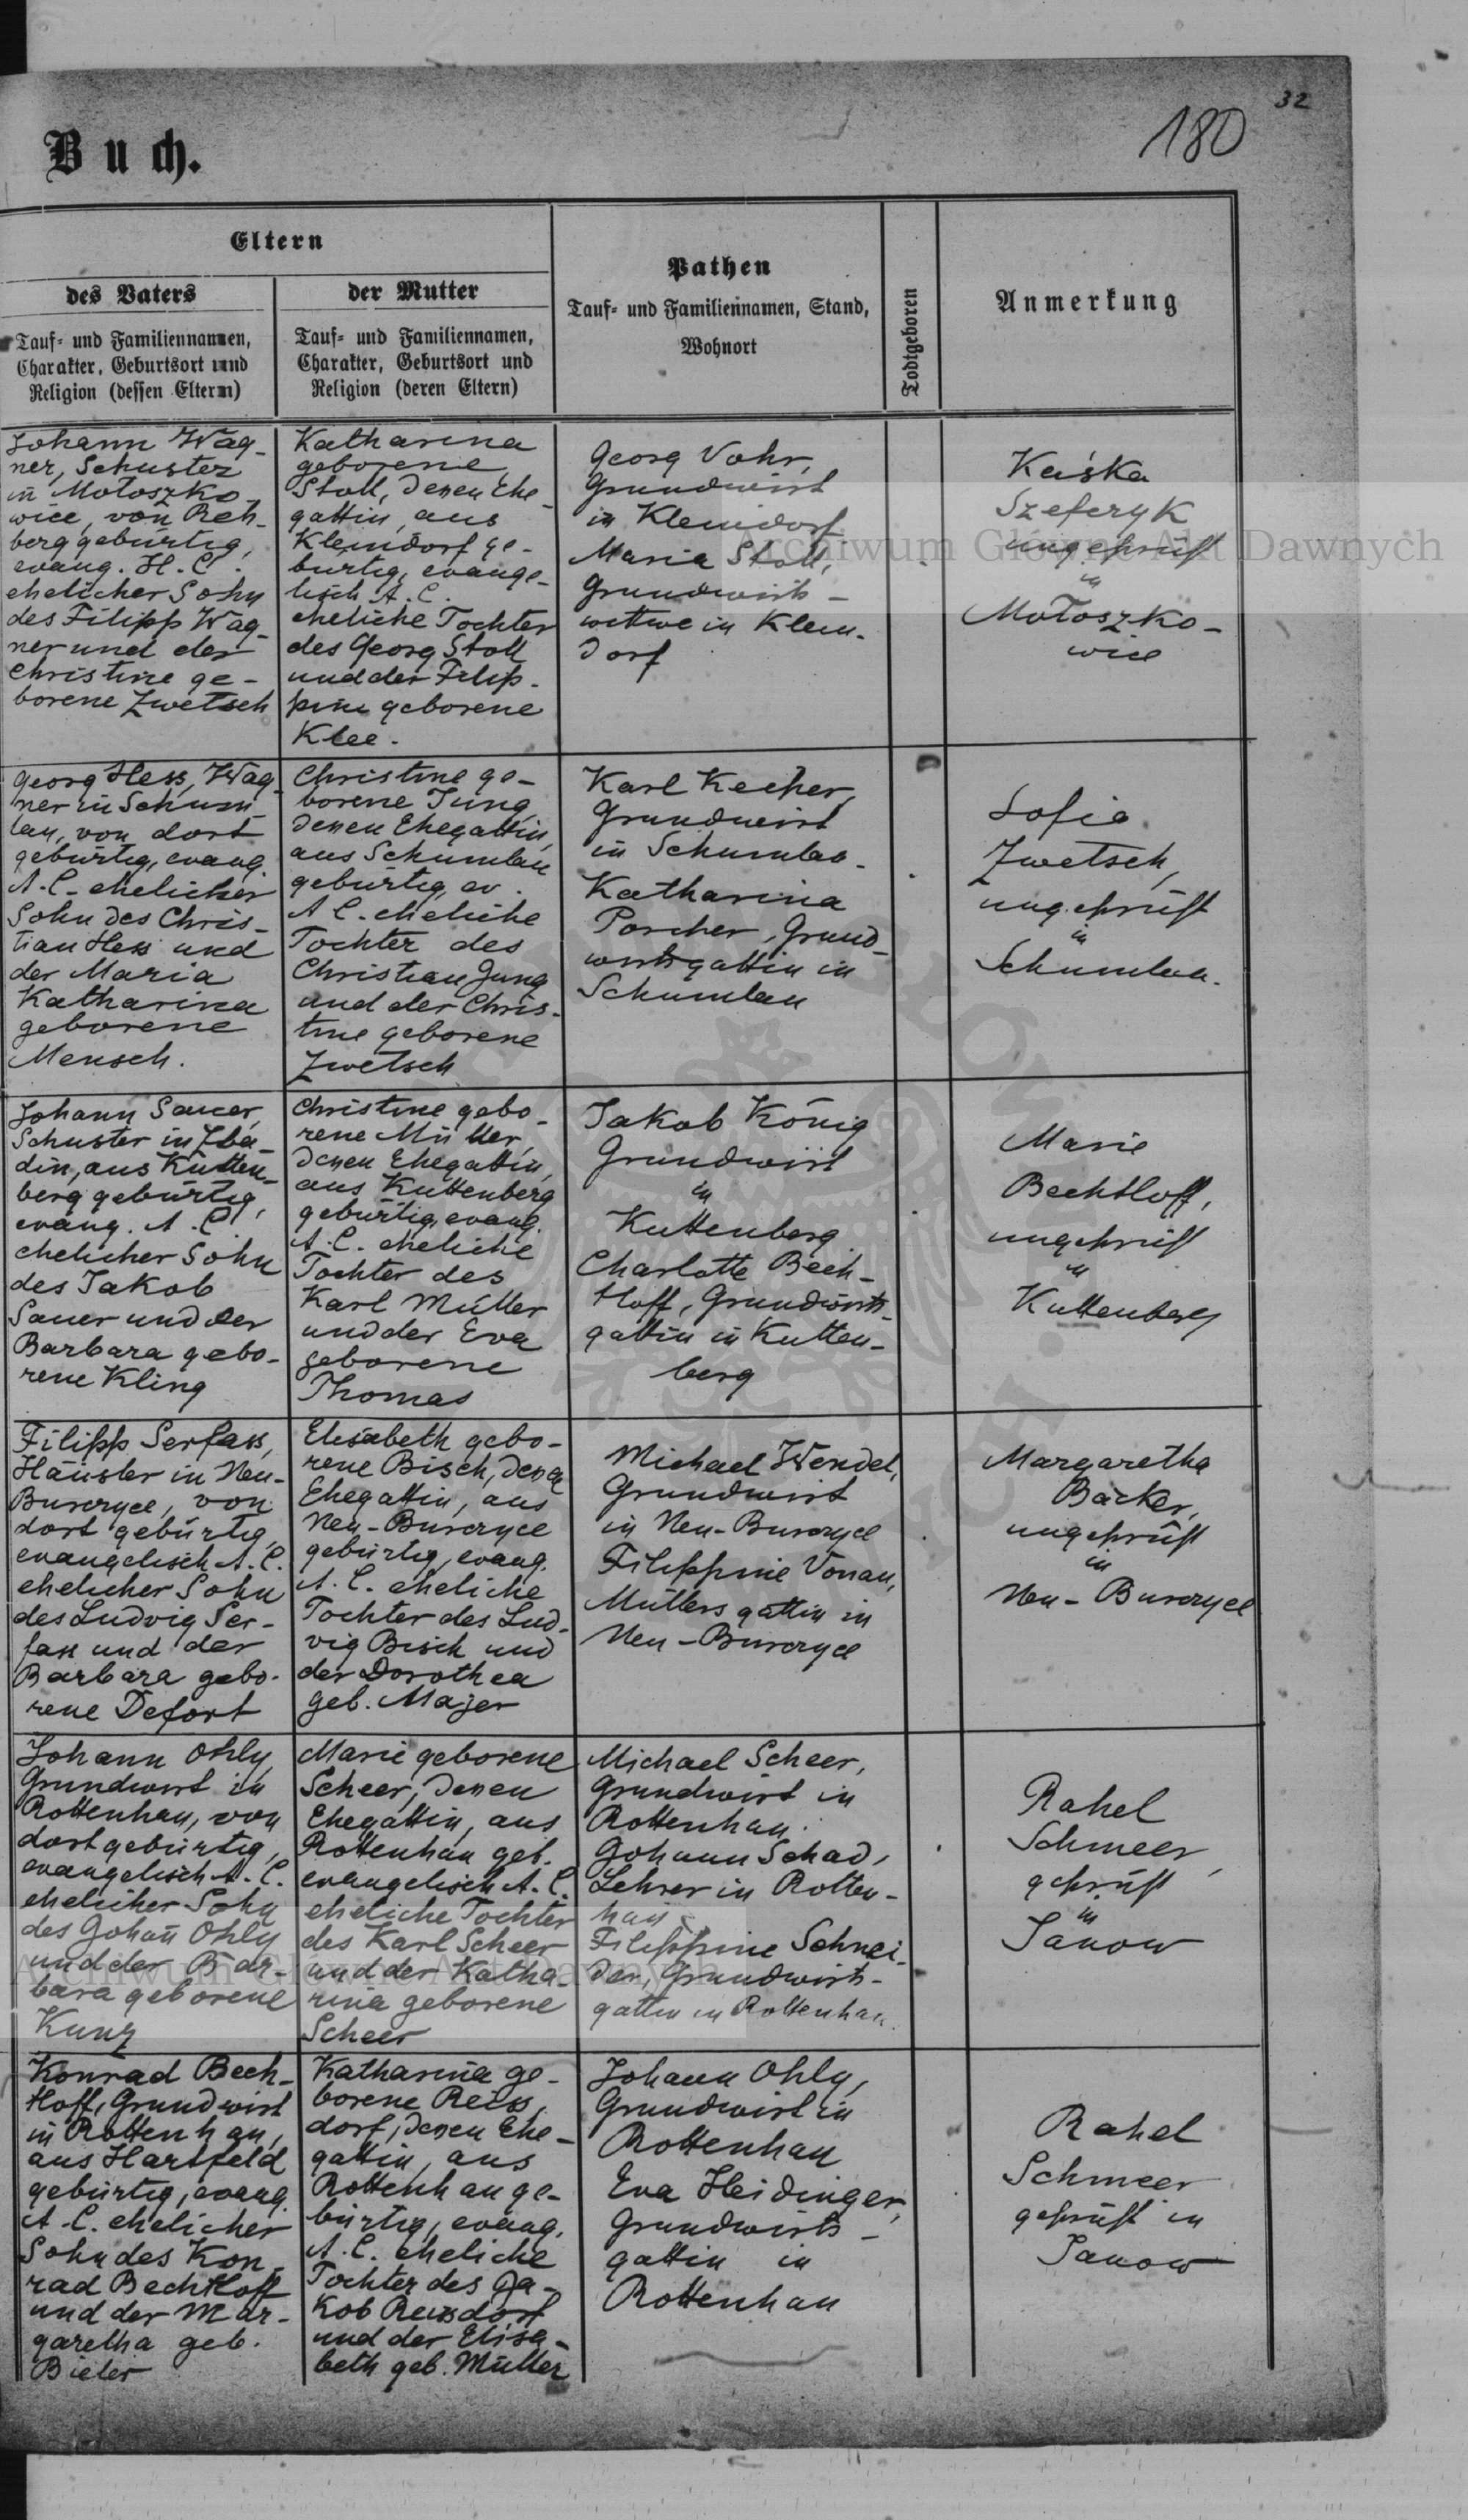 32
180
Buch.
Eltern
des Vaters
Tauf- und Familiennamen,
Charakter, Geburtsort und
Religion (dessen Eltern)
der Mutter
Tauf- und Familiennamen,
Charakter, Geburtsort und
Religion (deren Eltern)
Pathen
Tauf- und Familiennamen, Stand,
Wohnort
Todtgeboren
Anmerkung
Johann Wag-
ner, Schuster
in Mołoszko-
wice, von Reh-
berg gebürtig,
evang. H. C.
ehelicher Sohn
des Filipp Wag-
ner und der
Christine ge-
borene Zwetsch
Katharina
geborene
Stoll, dessen Ehe-
gattin, aus
Kleindorf ge-
bürtig, evange-
lisch A. C.
eheliche Tochter
des Georg Stoll
und der Filip-
pine geborene
Klee.
Georg Vohr,
Grundwirt
in Kleindorf
Maria Stoll,
Grundwirts-
wittwe in Klein-
dorf
Kaśka
Szeferyk
ungeprüft
in
Mołoszko-
wice
Georg Hess, Wag-
ner in Schum-
lau, von dort
gebürtig, evang.
A. C. ehelicher
Sohn des Chris-
tian Hess und
der Maria
Katharina
geborene
Mensch.
Christine ge-
borene Jung,
dessen Ehegattin,
aus Schumlau
gebürtig, ev.
A C. eheliche
Tochter des
Christian Jung
und der Chris-
tine geborene
Zwetsch
Karl Kecher,
Grundwirt
in Schumlau.
Katharina
Porcher, Grund-
wirtsgattin in
Schumlau
Sofia
Zwetsch,
ungeprüft
in
Schumlau.
Johann Sauer,
Schuster in Zba-
din, aus Kutten-
berg gebürtig,
evang. A. C.
ehelicher Sohn
des Jakob
Sauer und der
Barbara gebo-
rene Kling
Christine gebo-
rene Müller,
dessen Ehegattin,
aus Kuttenberg
gebürtig, evang.
A. C. eheliche
Tochter des
Karl Müller
und der Eva
geborene
Thomas
Jakob König
Grundwirt
in
Kuttenberg
Charlotte Bech-
tloff, Grundwirts-
gattin in Kutten-
berg
Marie
Bechtloff,
ungeprüft
in
Kuttenberg
Filipp Serfass,
Häusler in Neu-
Burczyce, von
dort gebürtig,
evangelisch A. C.
ehelicher Sohn
des Ludvig Ser-
fass und der
Barbara gebo-
rene Defort
Elisabeth gebo-
rene Bisch, dessen
Ehegattin, aus
Neu-Burczyce
gebürtig, evang.
A. C. eheliche
Tochter des Lud-
vig Bisch und
der Dorothea
geb. Majer
Michael Wendel,
Grundwirt
in Neu-Burczyce
Filippine Vonau,
Müllersgattin in
Neu-Burczyce
Margaretha
Bäcker,
ungeprüft
in
Neu-Burczyce
Johann Ohly
Grundwirt in
Rottenhan, von
dort gebürtig,
evangelisch A. C.
ehelicher Sohn
des Johañ Ohly
und der Bar-
bara geborene
Kunz
Marie geborene
Scheer, dessen
Ehegattin, aus
Rottenhan geb.
evangelisch A. C.
eheliche Tochter
des Karl Scheer
und der Katha-
rina geborene
Scheer
Michael Scheer,
Grundwirt in
Rottenhan.
Johann Schad,
Lehrer in Rotten-
han
Filippine Schnei-
der, Grundwirts-
gattin in Rottenhan.
Rahel
Schmeer,
geprüft
in
Janow
Konrad Bech-
tloff, Grundwirt
in Rottenhan,
aus Hartfeld
gebürtig, evang.
A. C. ehelicher
Sohn des Kon-
rad Bechtloff
und der Mar-
garetha geb.
Bieler
Katharina ge-
borene Reiss-
dorf, dessen Ehe-
gattin, aus
Rottenhan ge-
bürtig, evang.
A. C. eheliche
Tochter des Ja-
kob Reissdorf
und der Elisa-
beth geb. Müller
Johann Ohly,
Grundwirt in
Rottenhan
Eva Heidinger,
Grundwirts-
gattin in
Rottenhan
Rahel
Schmeer
geprüft in
Janow
Archiwum Główne Akt Dawnych
Archiwum Główne Akt Dawnych